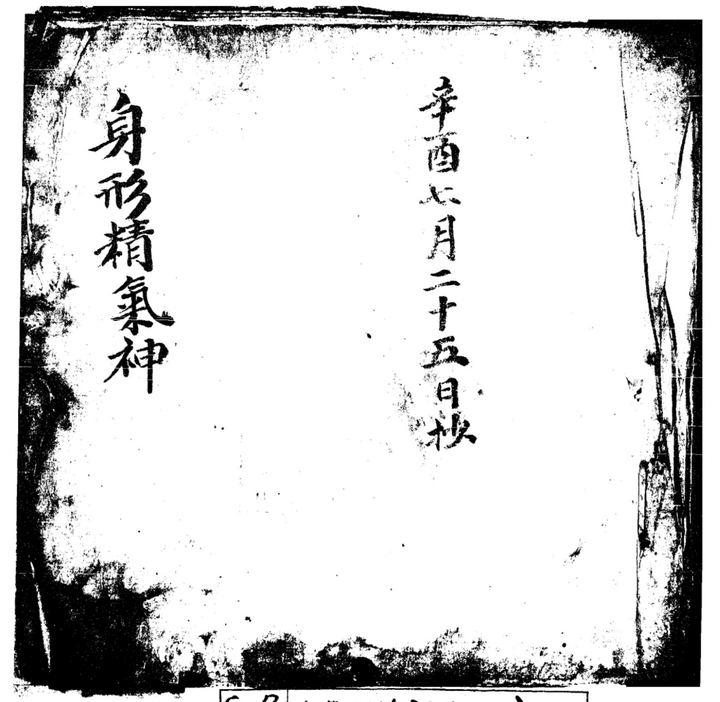 辛酉七月二十五日抄
身形精氣神